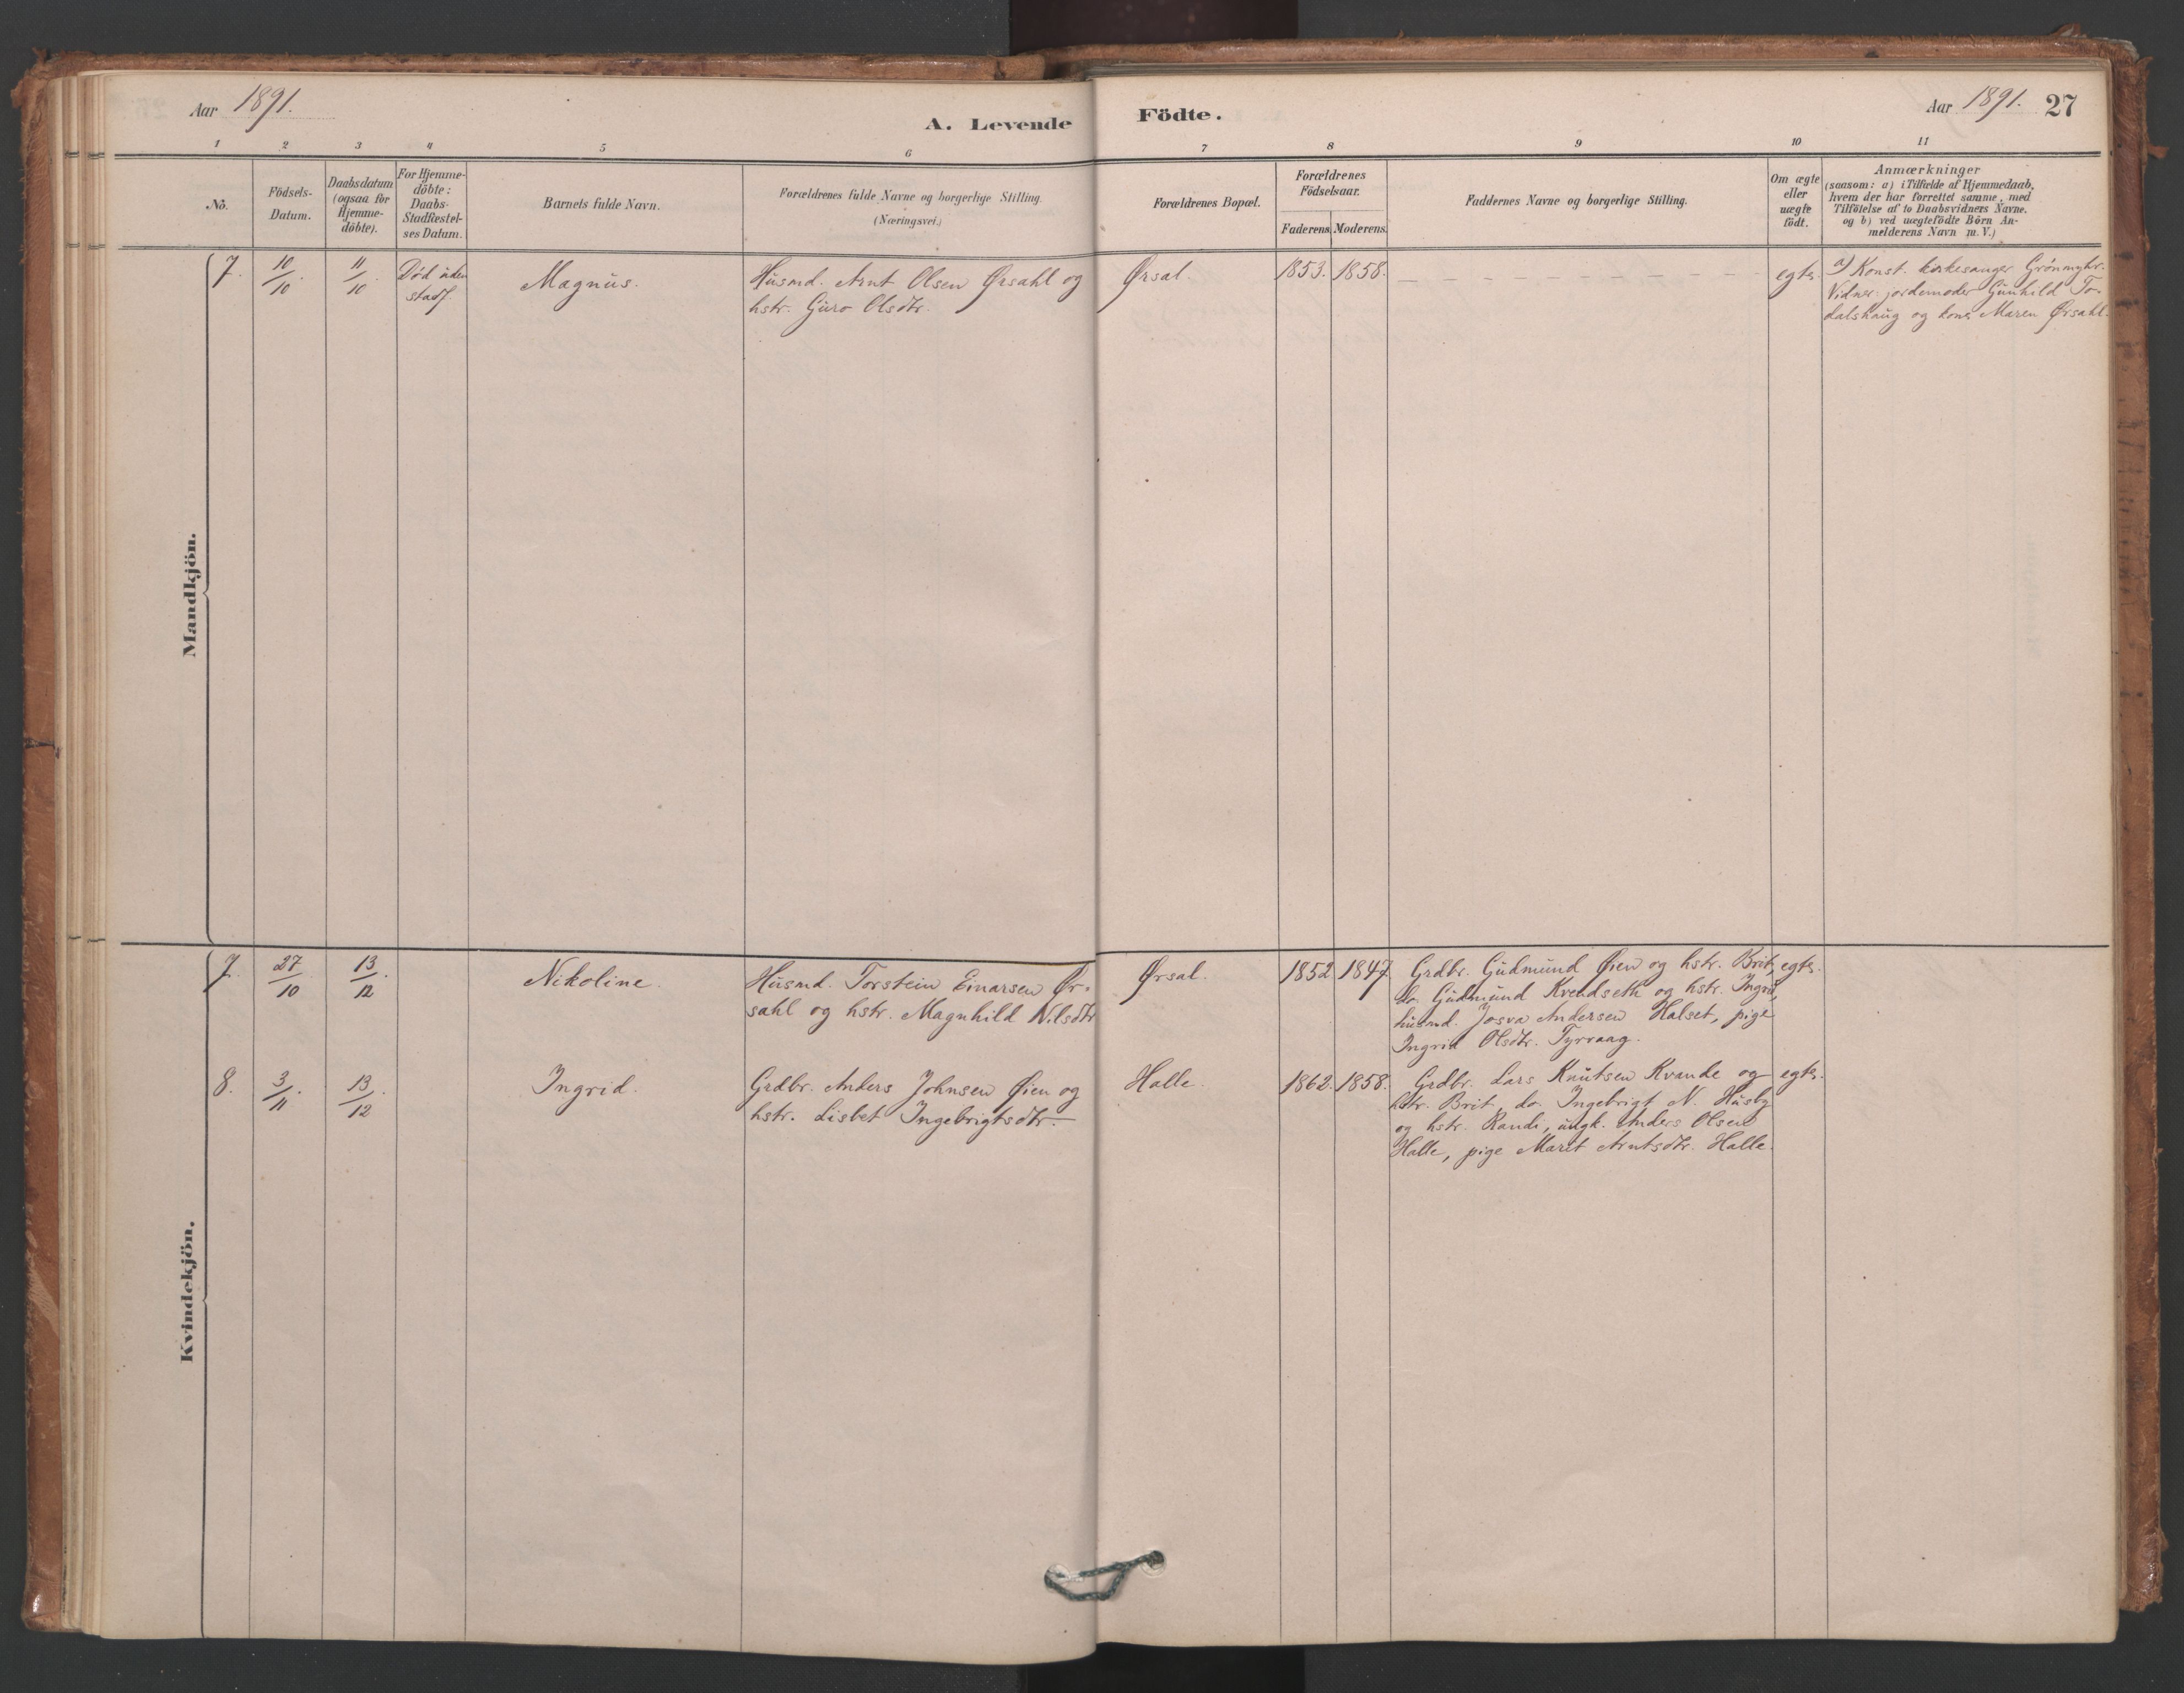 Aar 1891.
A. Levende Födte.
Aar 1891. 27
1 2 3 4 5 6 7 8 9 10 11
No.
Födsels-
Datum.
Daabsdatum
(ogsaa for
Hjemme-
döbte).
For Hjemme-
döbte:
Daabs-
Stadfæstel-
ses Datum.
Barnets fulde Navn.
Forældrenes fulde Navne og borgerlige Stilling.
(Næringsvei.)
Forældrenes Bopæl.
Forældrenes
Födselsaar.
Faderens. Moderens.
Faddernes Navne og borgerlige Stilling.
Om ægte
eller
uægte
födt.
Anmærkninger
(saasom: a) i Tilfælde af Hjemmedaab,
hvem der har forrettet samme, med
Tilföielse af to Daabsvidners Navne.
og b) ved uægtefödte Börn An-
melderens Navn m. V.)
Mandkjön.
7. 10/10. 11/10.
Död uden
stadf.
Magnus.
Husmd. Arnt Olsen Ørsahl og
hstr. Guro Olsdtr.
Ørsal.
1853. 1858.
egte.
a) Konst. kirkesanger Grönmyhr.
Vidner: jordemoder Gunhild To-
dalshaug og kone Maren Ørsahl.
Kvindekjön.
7. 27/10. 13/12
Nikoline.
Husmd. Torstein Einarsen Ør-
sahl og hstr. Magnhild Nilsdtr
Ørsal.
1852 1847.
Grdbr. Gudmund Øien og hstr. Brit,
do. Gudmund Kvendseth og hstr. Ingrid,
husmd. Josva Andersen Halset, pige
Ingrid Olsdtr. Tyrraag.
egte.
8. 3/11. 13/12.
Ingrid.
Grdbr. Anders Johnsen Øien og
hstr. Lisbet Ingebrigtsdtr.
Halle.
1862. 1858.
Grdbr. Lars Knutsen Kvande og
hstr. Brit, do. Ingebrigt N. Husby
og hstr. Randi, ungk. Anders Olsen
Halle, pige Marit Arntsdtr. Halle.
egte.